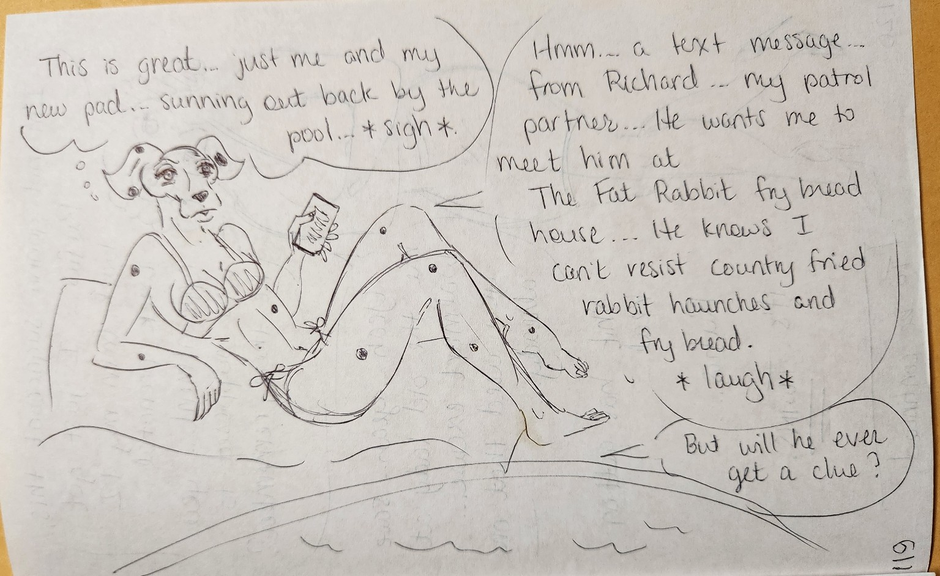 This is great... just me and my
new pad... sunning out back by the
pool... *sigh*.
Hmm... a text message...
from Richard... my patrol
partner... He wants me to
meet him at
The Fat Rabbit fry bread
house... He knows I
can't resist country fried
rabbit haunches and
fry bread.
*laugh*
But will he ever
get a clue?